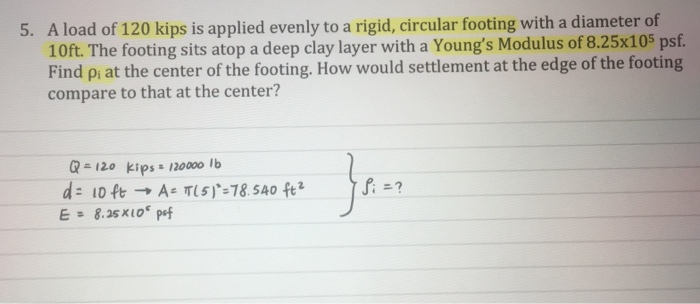 5. A load of 120 kips is applied evenly to a rigid, circular footing with a diameter of
10ft. The footing sits atop a deep clay layer with a Young's Modulus of 8.25x10⁵ psf.
Find ρᵢ at the center of the footing. How would settlement at the edge of the footing
compare to that at the center?
Q = 120 kips = 120000 lb
d = 10 ft → A = π(5)² = 78.540 ft² } ρᵢ = ?
E = 8.25×10⁵ psf